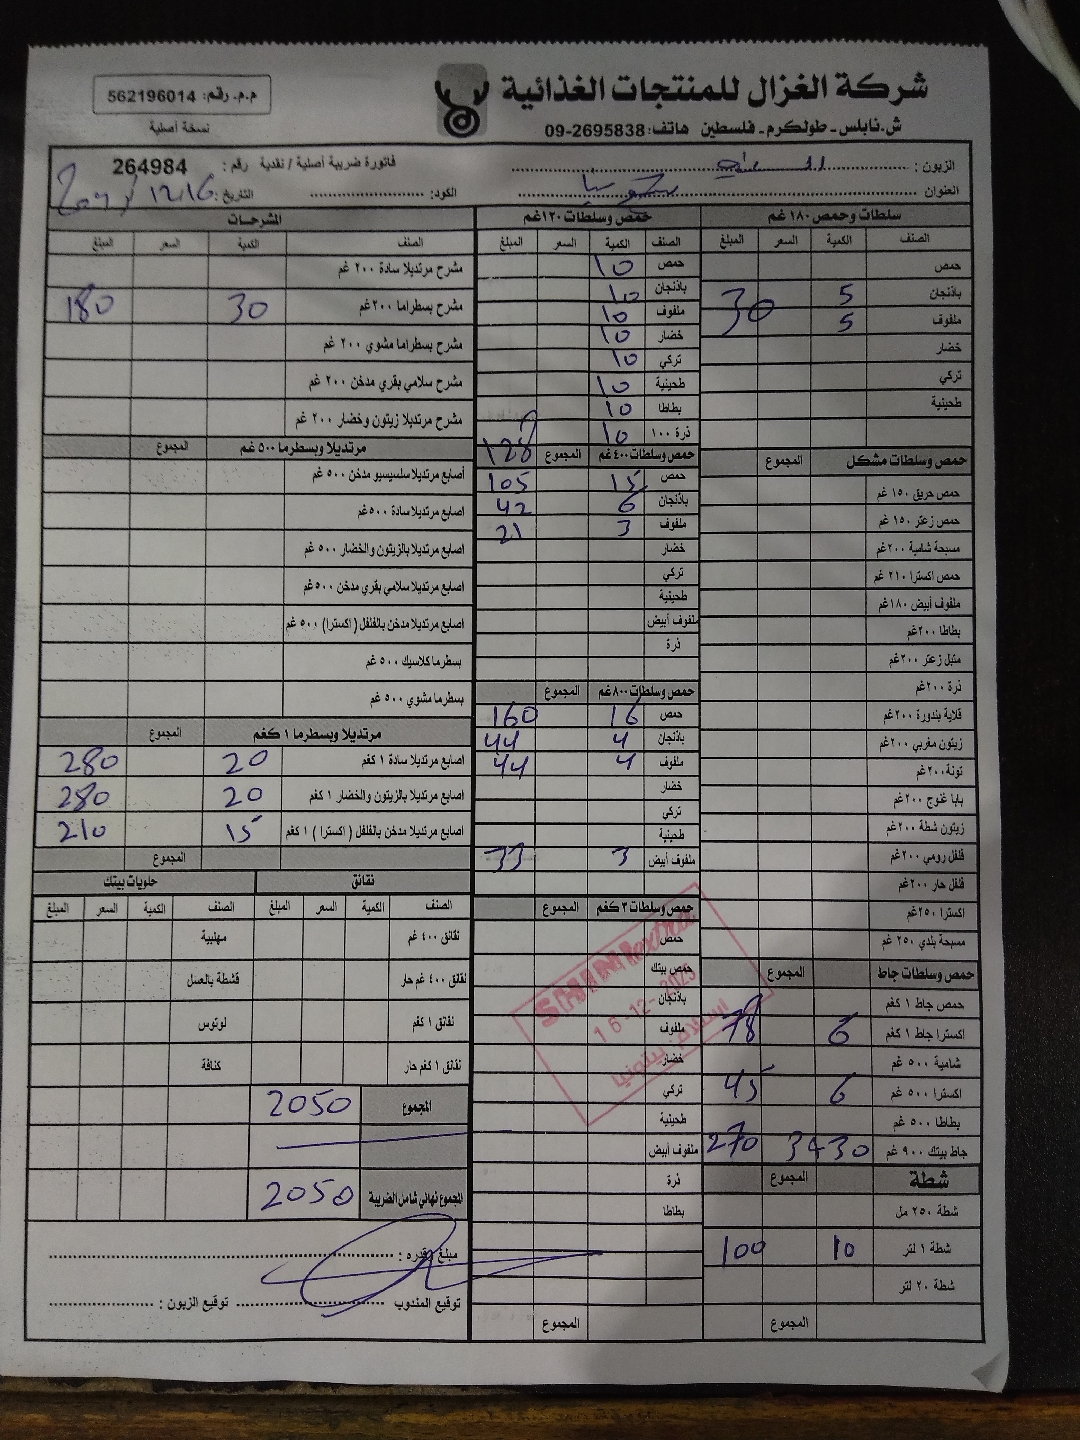 شركة الغزال للمنتجات الغذائية
ش.نابلس - طولكرم - فلسطين هاتف: 09-2695838
م.م. رقم: 562196014
نسخة أصلية
الزبون :
فاتورة ضريبية أصلية / نقدية رقم : 264984
العنوان
الكود:
التاريخ: 12/16
سلطات وحمص ١٨٠ غم
الصنف الكمية السعر المبلغ
حمص
باذنجان 5 30
ملفوف 5
خضار
تركي
طحينية
حمص وسلطات مشكل المجموع
حمص حريق ١٥٠ غم
حمص زعتر ١٥٠ غم
مسبحة شامية ٢٠٠غم
حمص اكسترا ٢١٠ غم
ملفوف أبيض ١٨٠غم
بطاطا ٢٠٠غم
متبل زعتر ٢٠٠غم
ذرة ٢٠٠غم
قلاية بندورة ٢٠٠غم
زيتون مغربي ٢٠٠غم
تونة ٢٠٠غم
بابا غنوج ٢٠٠غم
زيتون شطة ٢٠٠غم
فلفل رومي ٢٠٠غم
فلفل حار ٢٠٠غم
اكسترا ٢٥٠غم
مسبحة بلدي ٢٥٠ غم
حمص وسلطات جاط المجموع
حمص جاط ١ كغم
اكسترا جاط ١ كغم 6 78
شامية ٥٠٠ غم
اكسترا ٥٠٠ غم 6 45
بطاطا ٥٠٠ غم
جاط بيتك ٩٠٠ غم 30 270
شطة المجموع
شطة ٢٥٠ مل
شطة ١ لتر 10 100
شطة ٢٠ لتر
المجموع
حمص وسلطات ١٢٠غم
الصنف الكمية السعر المبلغ
حمص 10
باذنجان 10
ملفوف 10
خضار 10
تركي 10
طحينية 10
بطاطا 10
ذرة ١٠٠ 10 128
حمص وسلطات ٤٠٠غم المجموع
حمص 15 105
باذنجان 6 42
ملفوف 3 21
خضار
تركي
طحينية
ملفوف أبيض
ذرة
حمص وسلطات ٨٠٠غم المجموع
حمص 16 160
باذنجان 4 44
ملفوف 4 44
خضار
تركي
طحينية
ملفوف أبيض 3 33
حمص وسلطات ٣ كغم المجموع
حمص
حمص بيتك
باذنجان
ملفوف
خضار
تركي
طحينية
ملفوف أبيض
ذرة
بطاطا
المجموع
SHINI extra
16-12-2025
اسلام بيتونيا
المشرحات
الصنف الكمية السعر المبلغ
مشرح مرتديلا سادة ٢٠٠ غم
مشرح بسطراما ٢٠٠غم 30 180
مشرح بسطراما مشوي ٢٠٠ غم
مشرح سلامي بقري مدخن ٢٠٠ غم
مشرح مرتديلا زيتون وخضار ٢٠٠ غم
مرتديلا وبسطرما ٥٠٠ غم المجموع
أصابع مرتديلا سلسيسيو مدخن ٥٠٠ غم
اصابع مرتديلا سادة ٥٠٠غم
أصابع مرتديلا بالزيتون والخضار ٥٠٠ غم
اصابع مرتديلا سلامي بقري مدخن ٥٠٠غم
اصابع مرتديلا مدخن بالفلفل ( اكسترا ) ٥٠٠ غم
بسطرما كلاسيك ٥٠٠ غم
بسطرما مشوي ٥٠٠ غم
مرتديلا وبسطرما ١ كغم المجموع
اصابع مرتديلا سادة ١ كغم 20 280
اصابع مرتديلا بالزيتون والخضار ١ كغم 20 280
اصابع مرتديلا مدخن بالفلفل ( اكسترا ) ١ كغم 15 210
المجموع
نقانق حلويات بيتك
الصنف الكمية السعر المبلغ الصنف الكمية السعر المبلغ
نقانق ٤٠٠ غم مهلبية
نقانق ٤٠٠ غم حار قشطة بالعسل
نقانق ١ كغم لوتوس
نقانق ١ كغم حار كنافة
المجموع 2050
المجموع نهائي شامل الضريبة 2050
مبلغ وقدره :
توقيع المندوب توقيع الزبون :